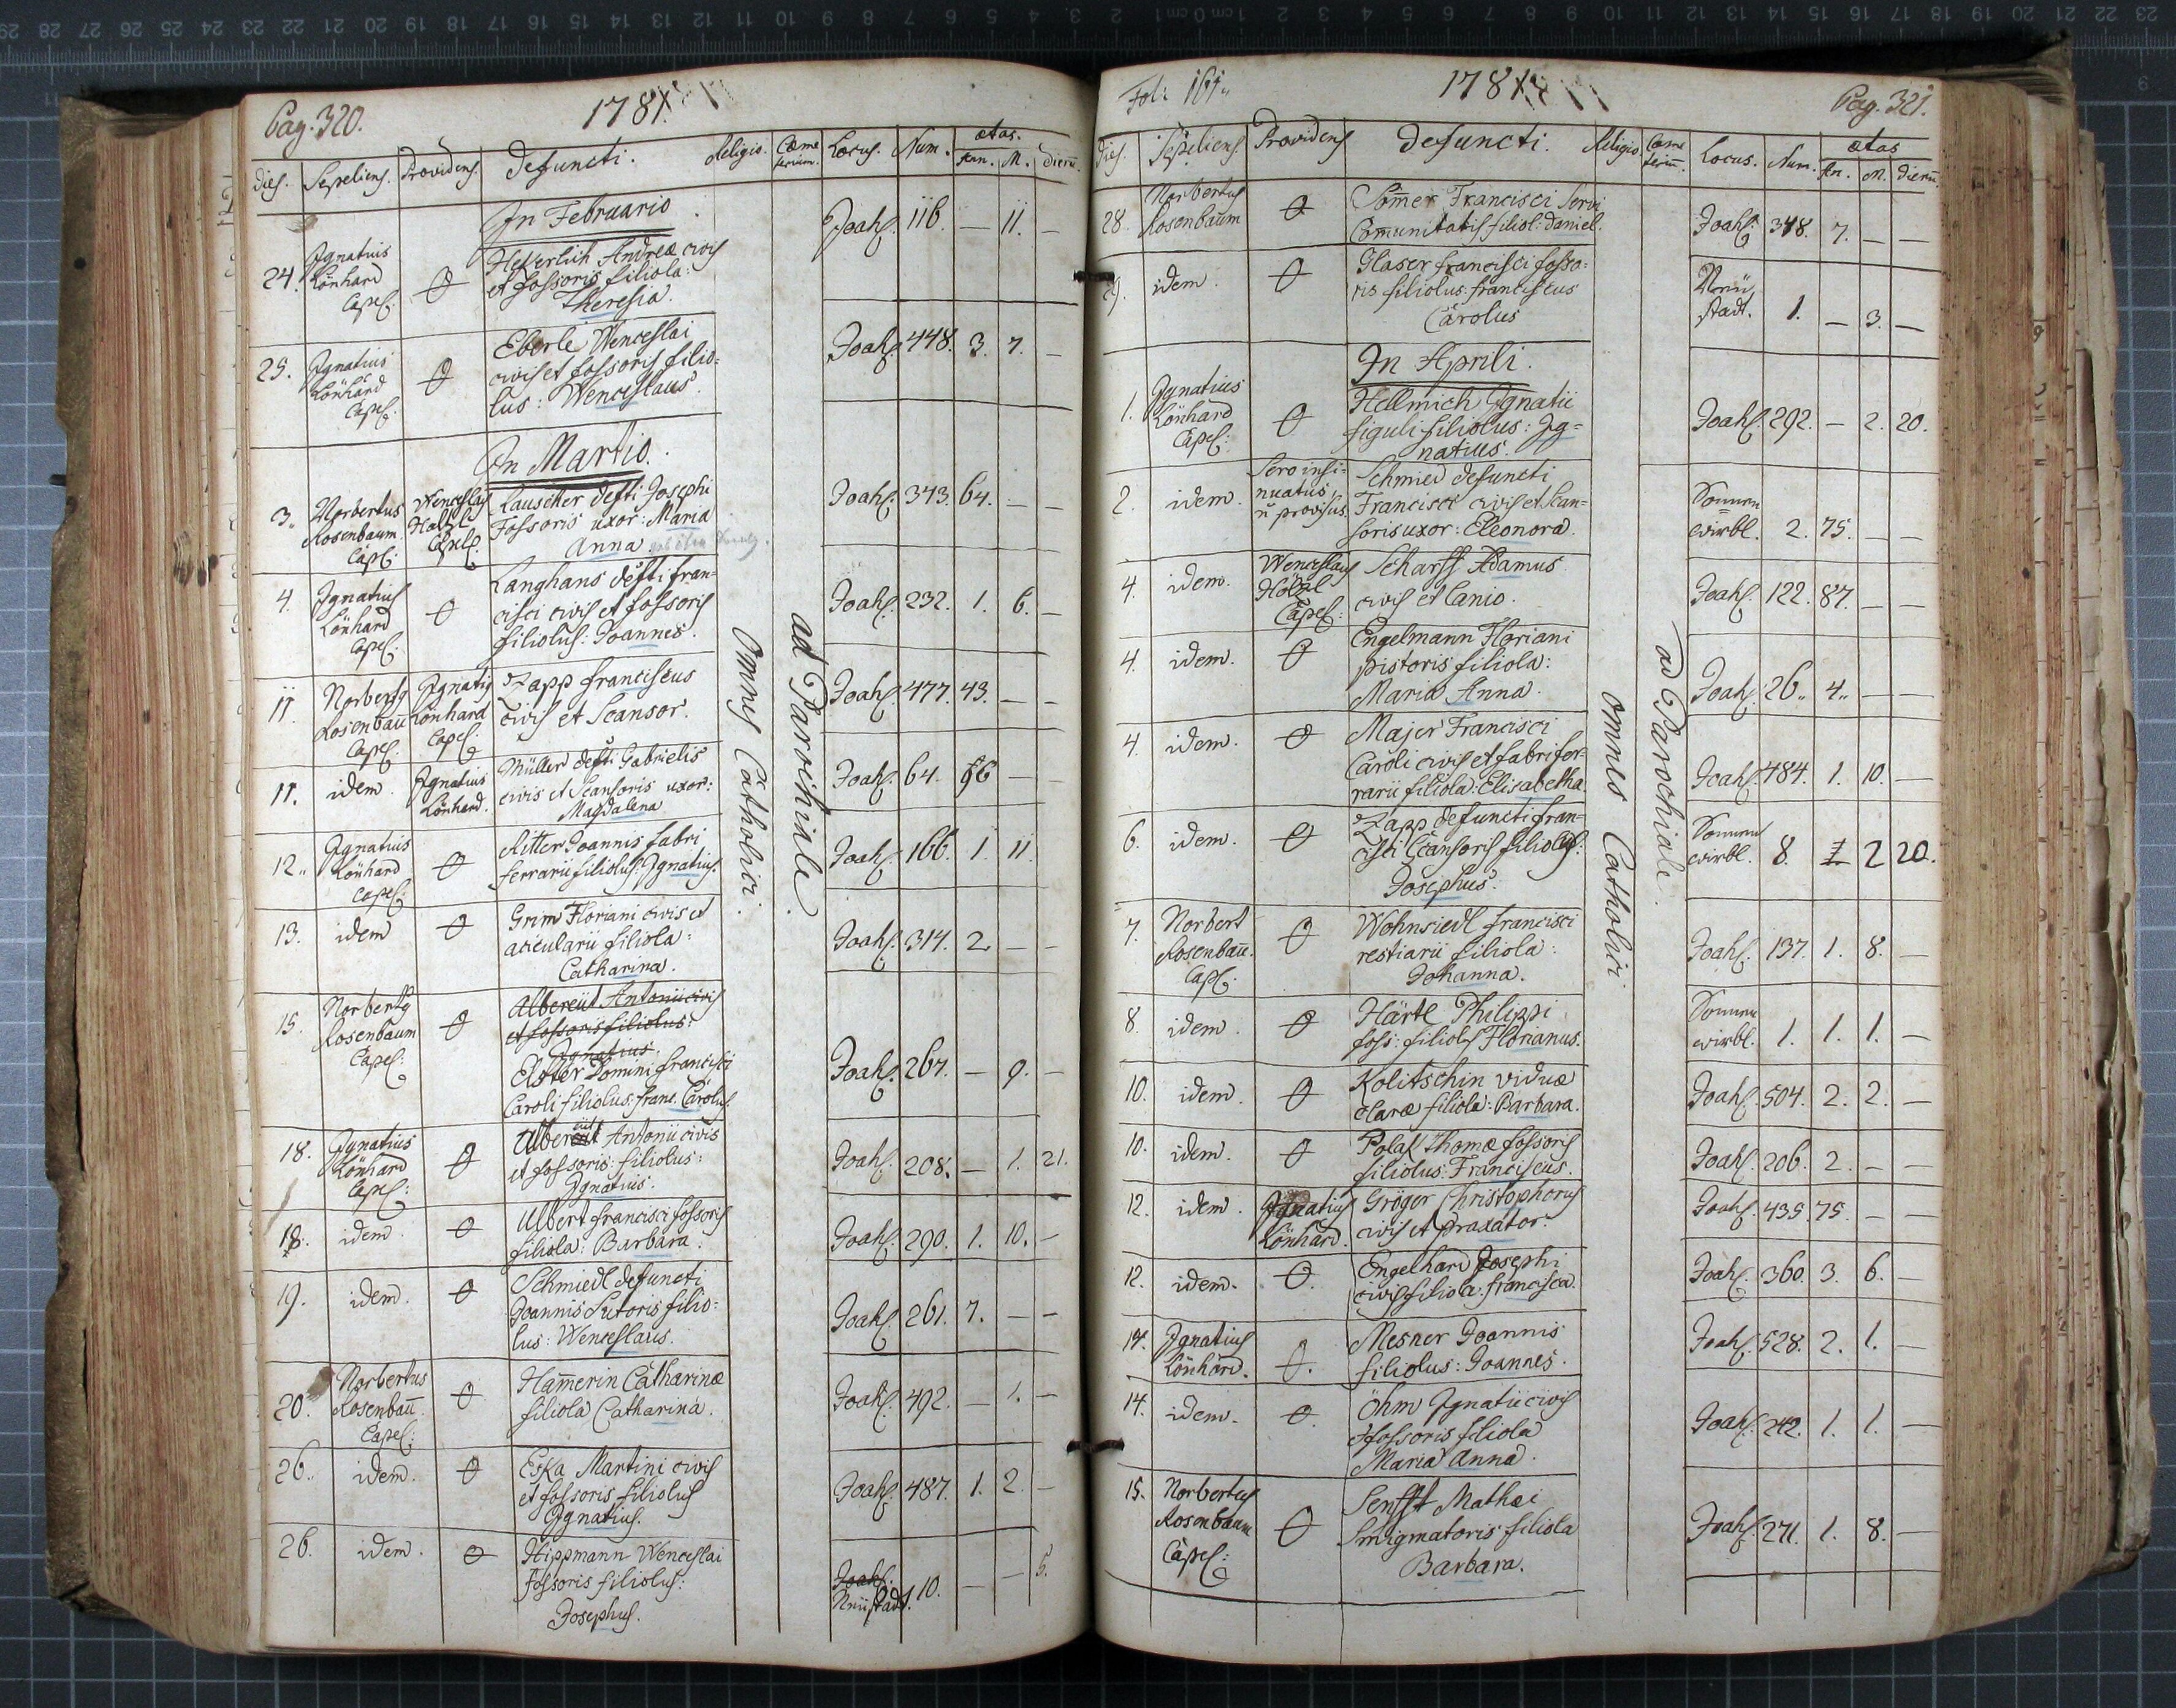 Pag. 320.
1781.
dies. Sepeliens. Providens. Defuncti. Religio. Cæme terium. Locus. Num. ætas. An. M. Dierū.
In Februario
24. Ignatius Lönhard Capel: O
Andreæ civis
et fossoris filiola:
Theresia.
Joahs. 116. — 11. —
25. Ignatius Lönhard Capel: O
Eberle Wenceslai
civis et fossoris filio=
lus: Wenceslaus.
Joahs. 448. 3. 7. —
In Martio.
3. Norbertus Rosenbaum Capl: Wenceslaus Holzl Capel:
Lauscher defti Josephi
Fossoris uxor: Maria
Anna
Joahs. 343. 64. — —
4. Ignatius Lönhard Capel: O
Langhans defti fran=
cisci civis et fossoris
filiolus: Joannes.
Joahs. 232. 1. 6. —
11. Norbertg Rosenbaū Capel: Ignatig Lönhard Capel:
Zapp franciscus
civis et Scansor.
Joahs. 477. 43. — —
11. idem Ignatius Lönhard.
Müller defti Gabrielis
civis et Scansoris uxor:
Magdalena
Joahs. 64. 66 — —
12. Ignatius Lönhard Capel: O
Ritter Joannis fabri
ferrarii filiolus: Ignatius.
Joahs. 166. 1. 11.
13. idem O
Grim Floriani civis et
acicularii filiola:
Catharina.
Joahs. 314. 2 — —
15. Norbertg Rosenbaum Capel: O
Albereüt Antonii civis
et fossoris filiolus:
Ignatius.
Elster Domini francisci
Caroli filiolus: franc. Carolus.
Joahs. 267. — 9. —
18. Ignatius Lönhard Capel: O
Antonii civis
et fossoris filiolus:
Ignatius.
Joahs. 208. — 1. 21.
18. idem. O
Ulbert francisci fossoris
filiola: Barbara.
Joahs. 290. 1. 10. —
19. idem. O
Schmiedl defuncti
Joannis Sutoris filio=
lus: Wenceslaus.
Joahs. 261. 7. — —
20. Norbertus Rosenbaū. Capel: O
Ham̄erin Catharinæ
filiola Catharina.
Joahs. 492. — 1. —
26. idem. O
Eska Martini civis
et fossoris filiolus
Ignatius.
Joahs. 487. 1. 2. —
26. idem. O
Hippmann Wenceslai
fossoris filiolus:
Josephus.
Joahs. Neustadt. 10. — — 5.
Omnes Catholici.
ad Parochiale.
Fol: 161.
1781
Pag. 321.
Dies. Sepeliens Providens Defuncti. Religio. Cæme teriū. Locus. Num. ætas An. M. Dierū.
28. Norbertus Rosenbaum O
Som̄er Francisci Servi
Com̄unitatis filiol: Daniel.
Joahs. 348. 7. — —
29. idem. O
Glaser francisci fosso=
ris filiolus: franciscus
Carolus
Neüstadt. 1. — 3. —
In Aprili.
1. Ignatius Lönhard Capel: O
Hellmich Ignatii
figuli filiolus: Ig=
natius.
Joahs. 292. — 2. 20.
2. idem. Sero insi= nuatus, n̄ provisus.
Schmied defuncti
Francisci civis et Scan=
soris uxor: Eleonora.
Sonnenwirbl. 2. 75. — —
4. idem. Wenceslaus Holzl Capel:
Scharff Adamus
civis et Lanio.
Joahs. 122. 87. — —
4. idem. O
Engelmann Floriani
pistoris filiola:
Maria Anna.
Joahs. 26. 4. — —
4. idem. O
Majer Francisci
Caroli civis et fabri fer=
rarii filiola: Elisabetha.
Joahs. 484. 1. 10. —
6. idem. O
Zapp defuncti fran=
cisci Scansoris filiolus:
Josephus.
Sonnenwirbl. 8. 2 20.
7. Norbert Rosenbaū. Capl: O
Wohnsiedl francisci
restiarii filiola:
Johanna.
Joahs. 137. 1. 8. —
8. idem. O
Härtl Philippi
foss: filiolus Florianus.
Sonnenwirbl. 1. 1. 1. —
10. idem. O
Kolitschin viduæ
Claræ filiola: Barbara.
Joahs. 504. 2. 2. —
10. idem. O
Polak Thomæ fossoris
filiolus: Franciscus.
Joahs. 206. 2. — —
12. idem. Ignatius Lönhard.
Gröger Christophorus
civis et praxator.
Joahs. 435. 75. — —
12. idem. O.
Engelhard Josephi
civis filiola: francisca.
Joahs. 360. 3. 6. —
14. Ignatius Lönhard. O.
Mesner Joannis
filiolus: Joannes.
Joahs. 528. 2. 1. —
14. idem. O.
Öhm Ignatii civis
et fossoris filiola
Maria Anna.
Joahs. 242. 1. 1. —
15. Norbertus Rosenbaum Capel: O
Senfft Mathæi
Smigmatoris filiola
Barbara.
Joahs. 271. 1. 8. —
Omnes Catholici.
ad Parochiale.